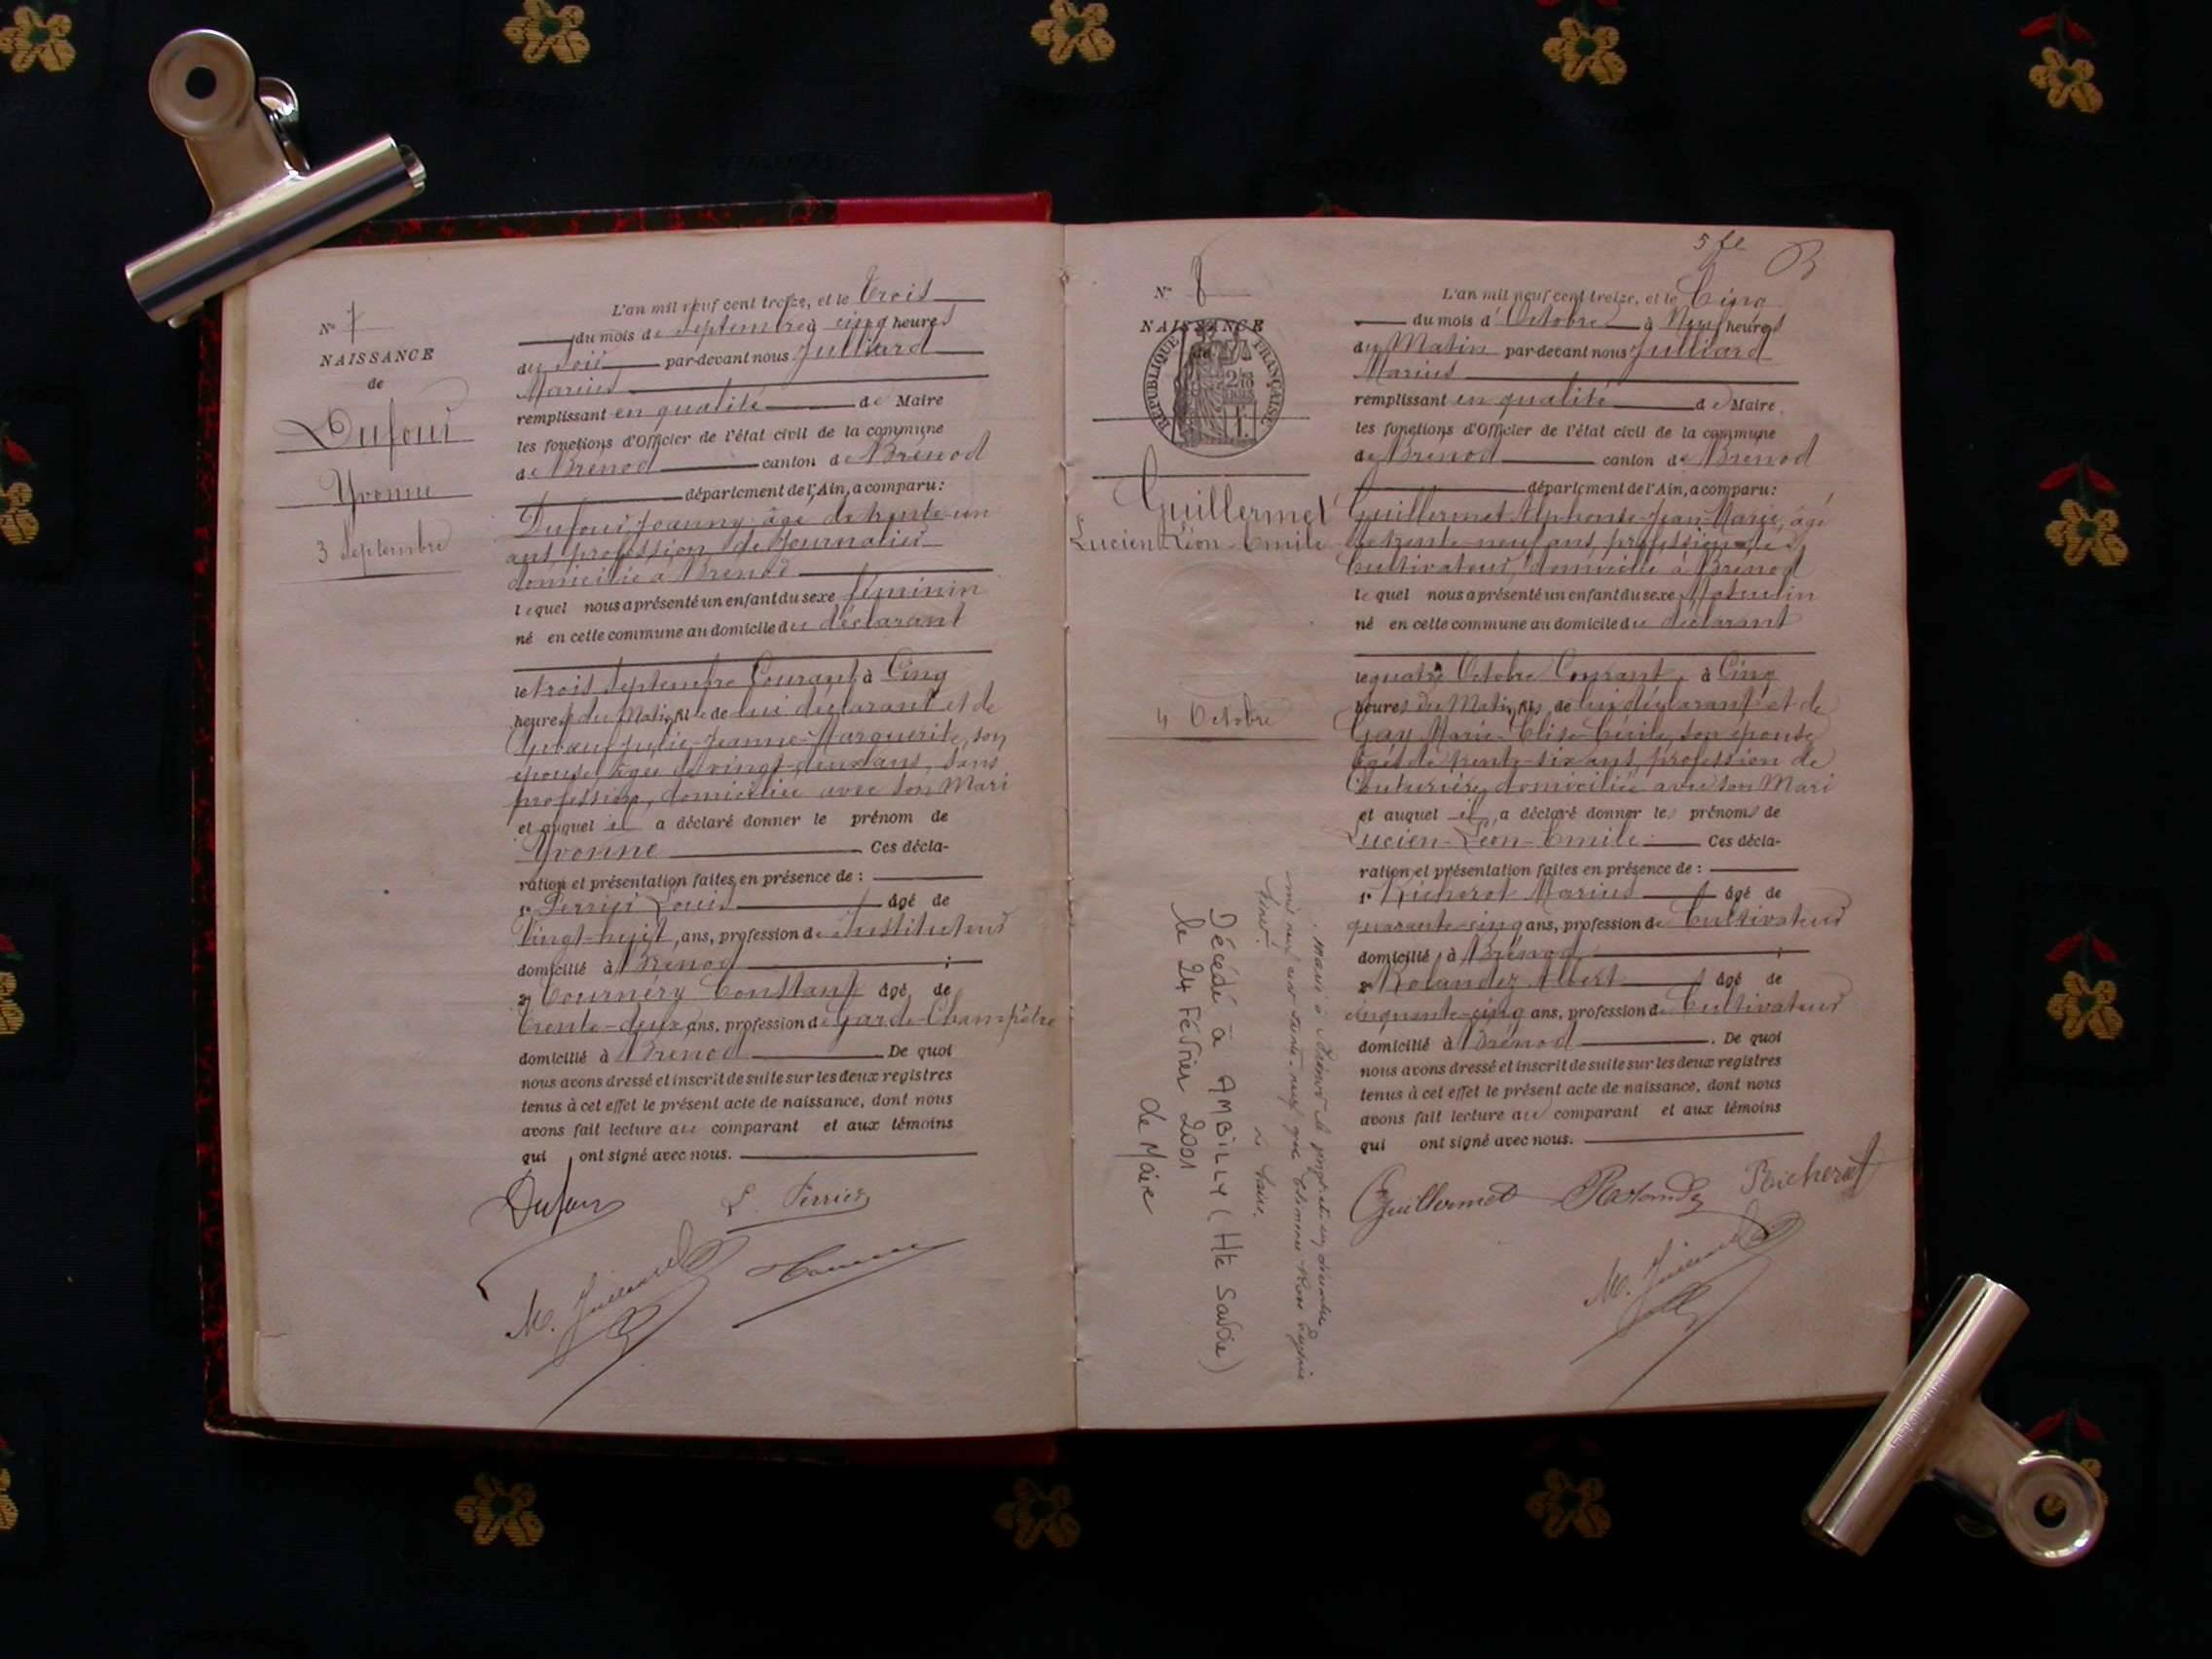 N° 7
NAISSANCE
de
Dufour
Yvonne
3 Septembre
L'an mil neuf cent treize, et le trois
du mois de Septembre à cinq heures
du soir par-devant nous Julliard
Marius
remplissant en qualité de Maire
les fonctions d'Officier de l'état civil de la commune
de Brénod canton de Brénod
département de l'Ain, a comparu :
Dufour Joanny, âgé de trente-un
ans, profession de Journalier
domicilié à Brénod
lequel nous a présenté un enfant du sexe féminin
né en cette commune au domicile du déclarant
le trois Septembre Courant à Cinq
heures du Matin, fille de lui déclarant et de
Julie-Jeanne-Marguerite, son
épouse, âgée de vingt-deux ans, sans
profession, domiciliée avec son Mari
et auquel il a déclaré donner le prénom de
Yvonne Ces décla-
ration et présentation faites en présence de :
1° Perrier Louis âgé de
Vingt-huit, ans, profession d' Instituteur
domicilié à Brénod ;
2° Tournéry Constant âgé de
trente-deux ans, profession de Garde-Champêtre
domicilié à Brénod De quoi
nous avons dressé et inscrit de suite sur les deux registres
tenus à cet effet le présent acte de naissance, dont nous
avons fait lecture au comparant et aux témoins
qui ont signé avec nous.
Dufour L. Perrier
M. Julliard
N° 8
NAISSANCE
de
RÉPUBLIQUE FRANÇAISE
Guillermet
Lucien Léon-Emile
4 Octobre
Décédé à AMBILLY (Hte Savoie)
le 24 Février 2001
Le Maire
5 fe
L'an mil neuf cent treize, et le Cinq
du mois d'Octobre à Neuf heures
du Matin par-devant nous Julliard
Marius
remplissant en qualité de Maire
les fonctions d'Officier de l'état civil de la commune
de Brénod canton de Brénod
département de l'Ain, a comparu :
Guillermet Alphonse-Jean-Marie, âgé
de trente-neuf ans, profession de
Cultivateur, domicilié à Brénod
lequel nous a présenté un enfant du sexe Masculin
né en cette commune au domicile du déclarant
le quatre Octobre Courant, à Cinq
heures du Matin, fils de lui déclarant et de
Gay Marie-Elise-Cécile, son épouse
âgée de trente-six ans, profession de
Couturière, domiciliée avec son Mari
et auquel il a déclaré donner les prénoms de
Lucien-Léon-Emile Ces décla-
ration et présentation faites en présence de :
1° Richerot Marius âgé de
quarante-cinq ans, profession de Cultivateur
domicilié à Brénod ;
2° Rolandez Albert âgé de
cinquante-cinq ans, profession de Cultivateur
domicilié à Brénod . De quoi
nous avons dressé et inscrit de suite sur les deux registres
tenus à cet effet le présent acte de naissance, dont nous
avons fait lecture au comparant et aux témoins
qui ont signé avec nous.
Guillermet Rolandez Richerot
M. Julliard